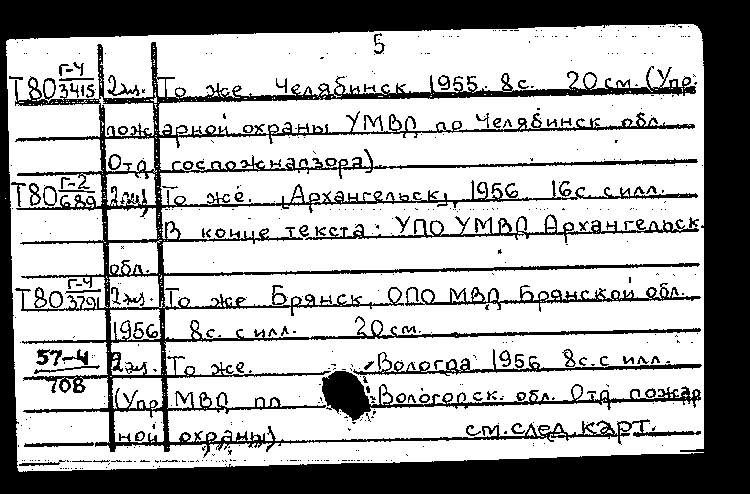 5
Т80 Г-4/3415 2экз. То же. Челябинск 1955. 8с. 20 см. (Упр.
пожарной охраны УМВД по Челябинск обл.
Отд госпожнадзора)
Т80 Г-2/689 2экз То же. [Архангельск], 1956 16с. с илл.
В конце текста: УПО УМВД Архангельск.
обл.
Т80 Г-4/3791 2экз. То же Брянск, ОПО МВД Брянской обл.
1956 8с. с илл. 20 см.
57-4/708 2экз. То же. Вологда 1956 8с. с илл.
(Упр МВД по Вологодск. обл. Отд пожар
ной охраны).
см. след. карт.